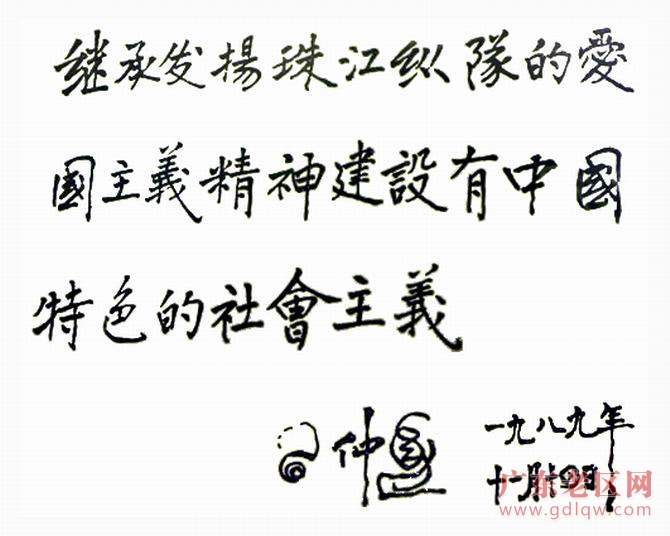 继承发揚珠江纵隊的愛
國主義精神建設有中國
特色的社會主義
仲
一九八九年
十
广东老区网
www.gdlqw.com